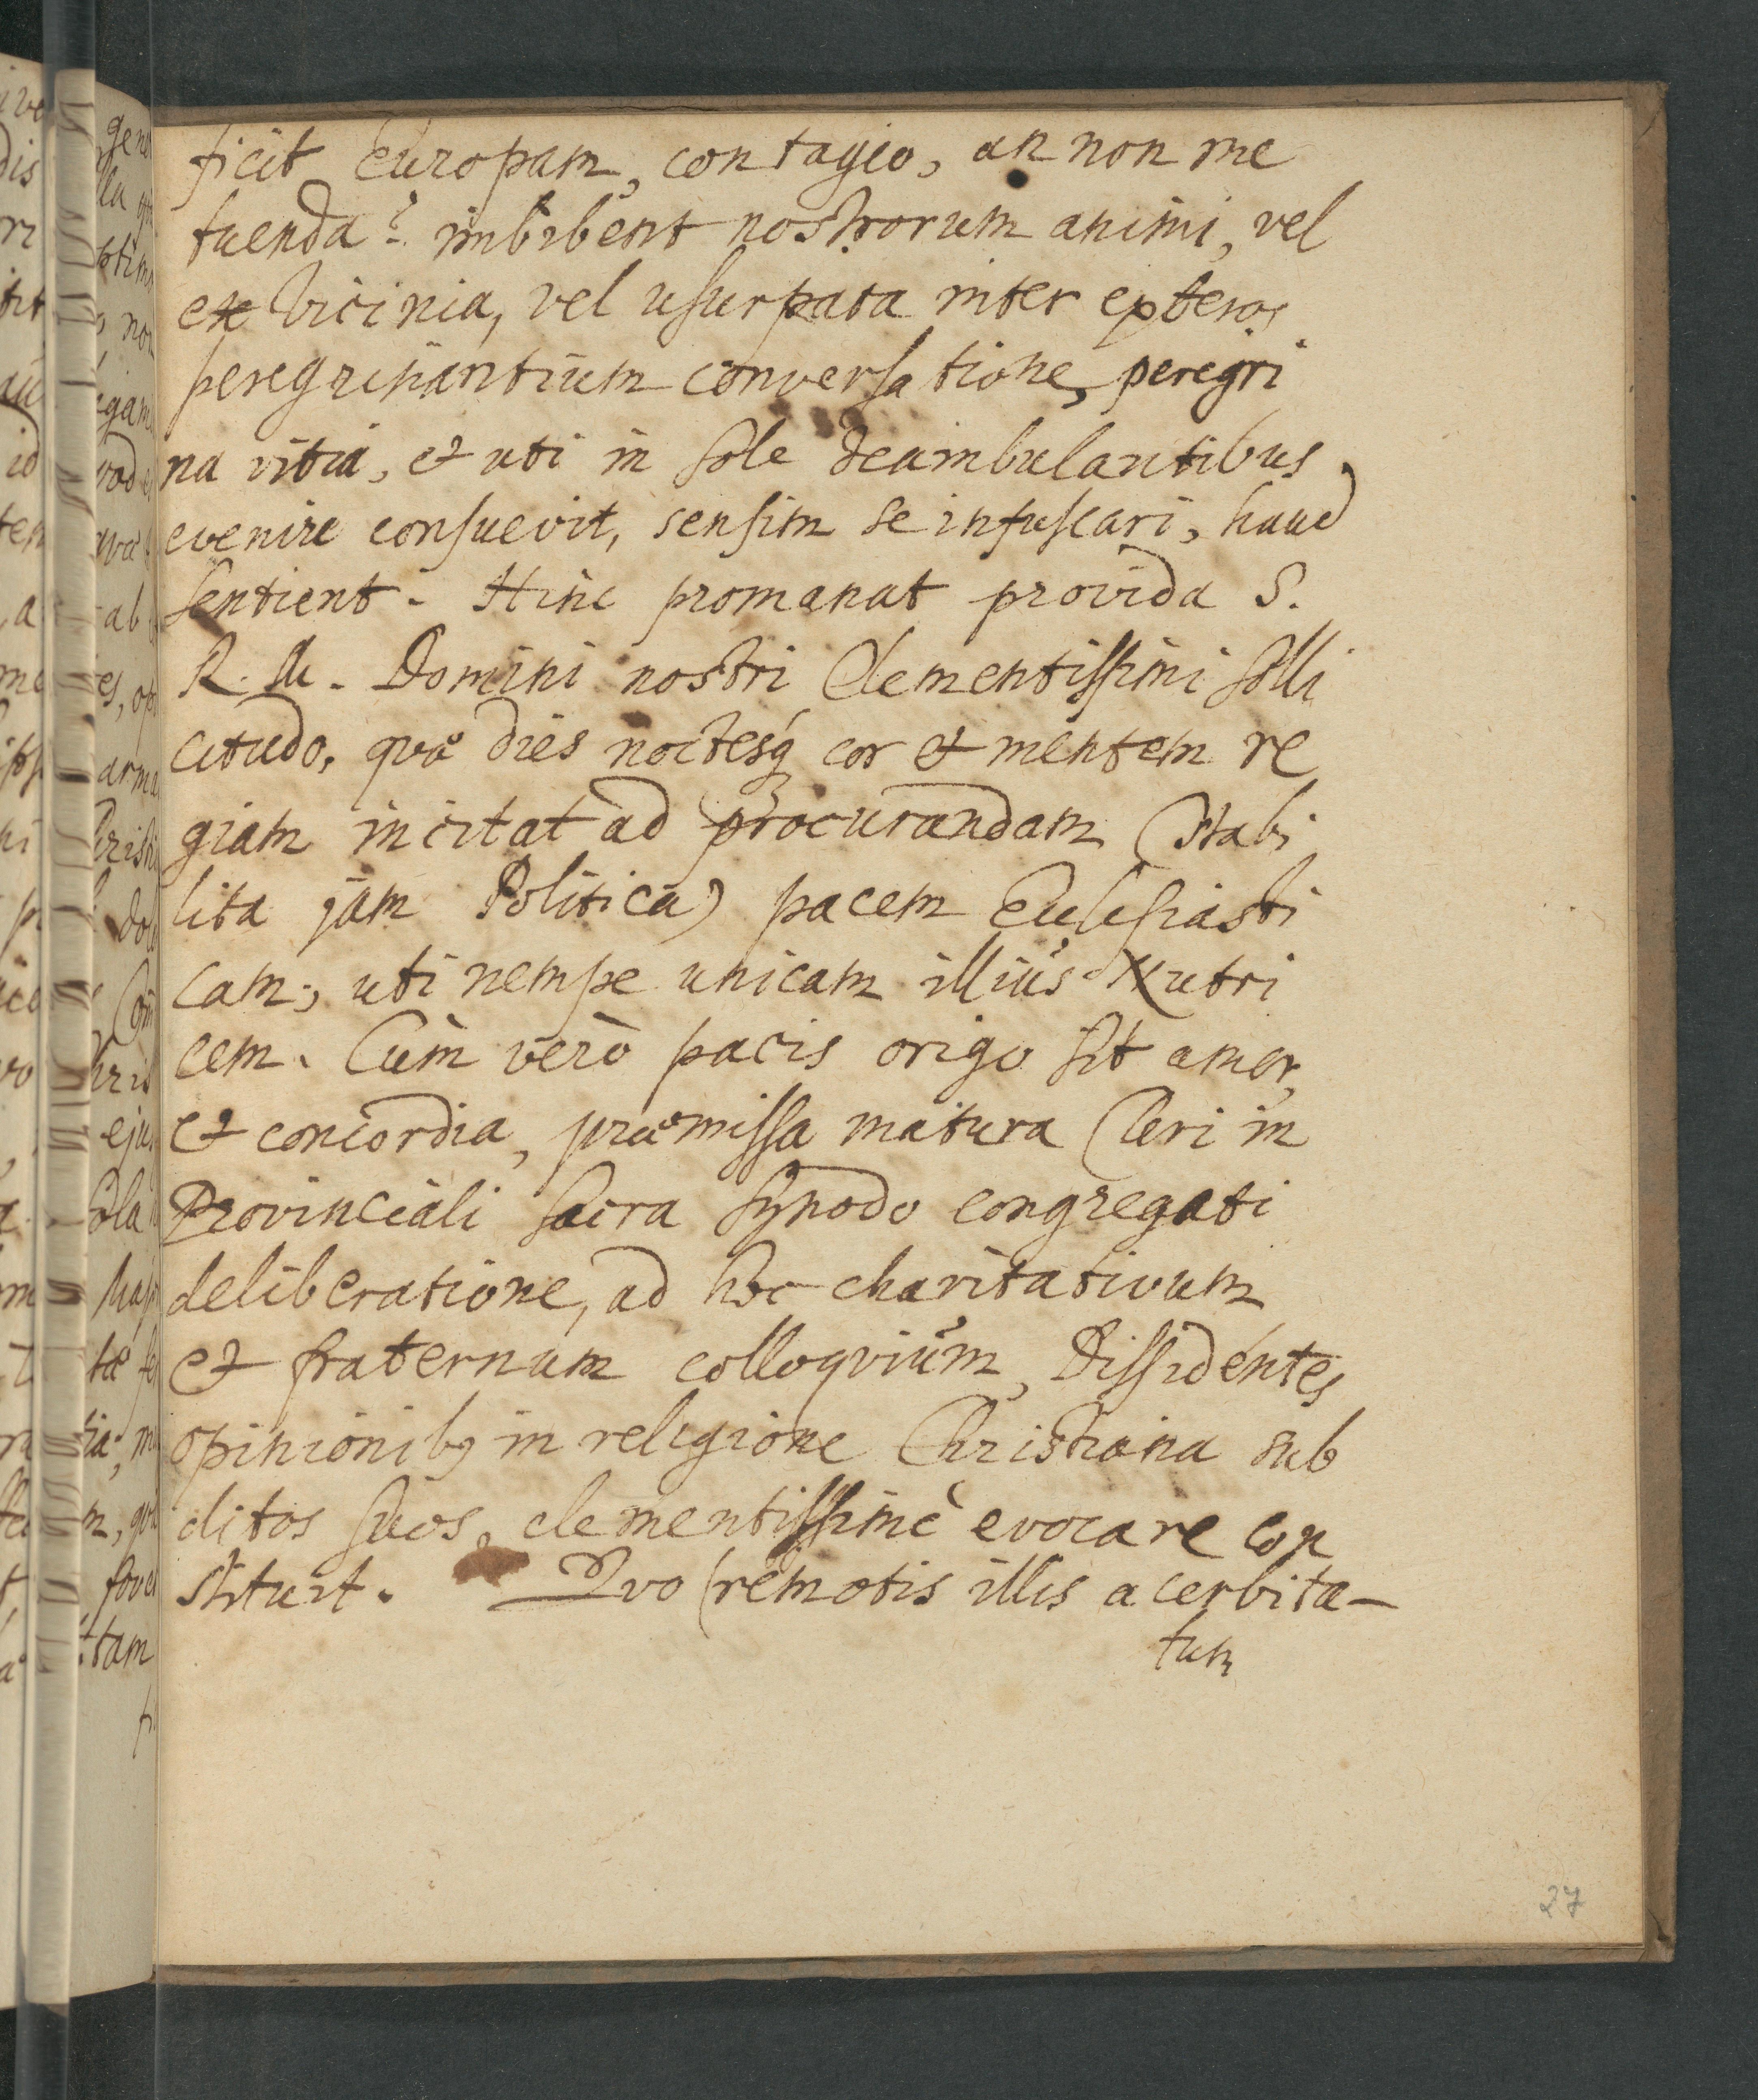 ficit Europam, contagio, an non me
tuenda? imbibent nostrorum animi, vel
ex Vicinia, vel usurpata inter exteros
peregrinantium conversatione, peregri
na vitia, et uti in sole deambulantibus
evenire consuevit, sensim se infuscari, haud
sentient. Hinc promanat provida S.
R. M. Domini nostri Clementissimi solli
citudo, quæ dies noctesq́ cor et mentem re
giam incitat ad procurandam (stabi
lita jam Politica) pacem Ecclesiasti
cam; uti nempe unicam illius Nutri
cem. Cùm verò pacis origo sit amor,
et concordia, præmissa matura Cleri in
Provinciali sacra Synodo congregati
deliberatione, ad hoc charitativum
et fraternum colloqvium, Dissidentes
opinionibꝫ in religione Christiana sub
ditos suos, clementissimè evocare con
stituit. Qvo (remotis illis acerbita-
tum
27